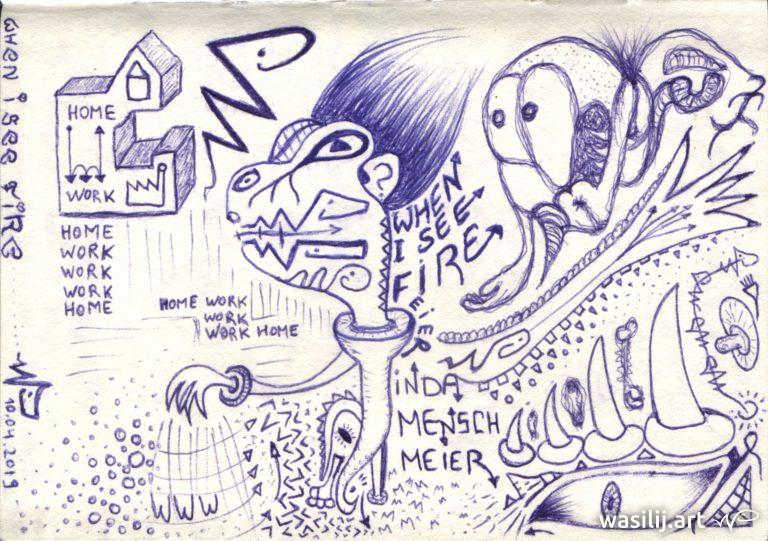 WHEN i SEE FiRE
10.04.2019
HOME
WORK
HOME
WORK
WORK
WORK
HOME
HOME WORK
WORK
WORK HOME
WWW
?
WHEN
I SEE
FiRE
EiER
iNDA
MENSCH
MEiER
wasilij.art